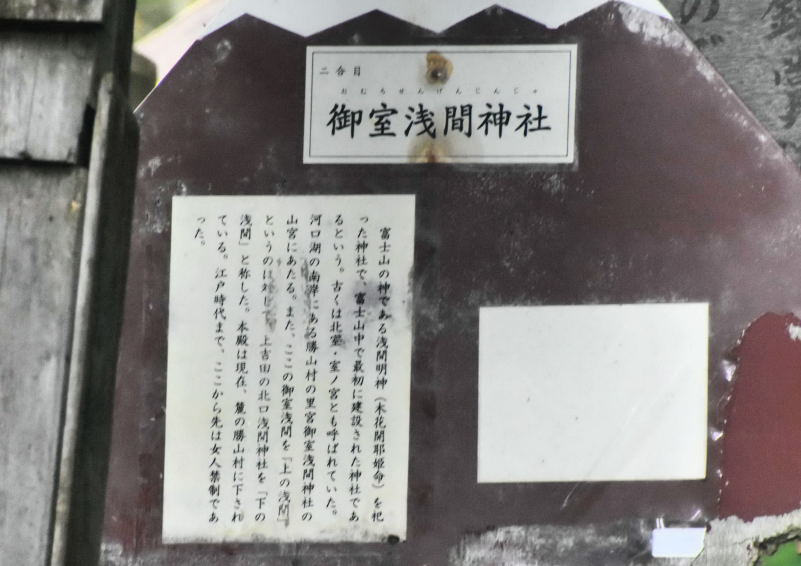 二合目
おむろせんげんじんじゃ
御室浅間神社
富士山の神である浅間明神（木花開耶姫命）を祀
った神社で、富士山中で最初に建設された神社であ
るという。古くは北室・室ノ宮とも呼ばれていた。
河口湖の南岸にある勝山村の里宮御室浅間神社の
山宮にあたる。また、ここの御室浅間を『上の浅間』
というのに対して、上吉田の北口浅間神社を『下の
浅間』と称した。本殿は現在、麓の勝山村に下され
ている。江戸時代まで、ここから先は女人禁制であ
った。